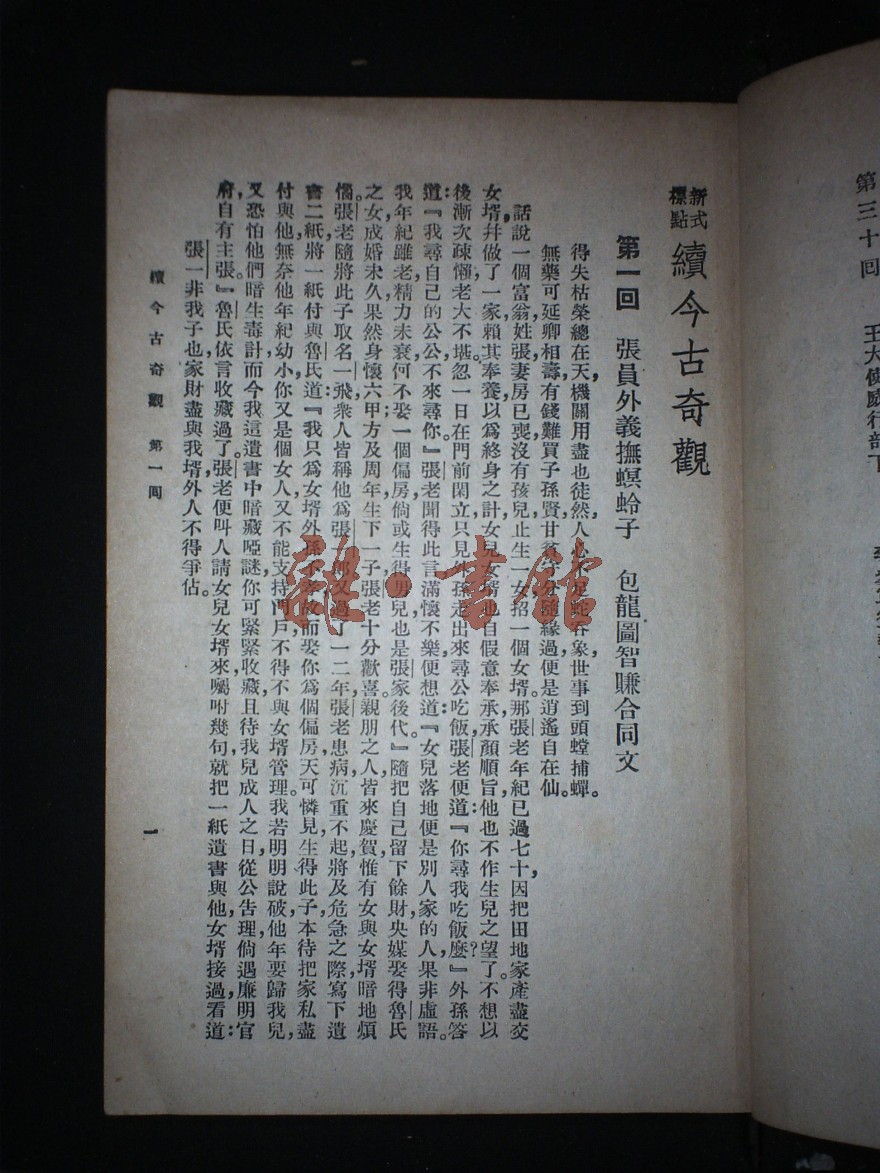 第三十回 王大使威行部下
新式標點 續今古奇觀
第一回 張員外義撫螟蛉子 包龍圖智賺合同文
得失枯榮總在天,機關用盡也徒然,人心不足蛇吞象,世事到頭螳捕蟬。
無藥可延卿相壽,有錢難買子孫賢,甘貧守分隨緣過,便是逍遙自在仙。
話說一個富翁,姓張,妻房已喪,沒有孩兒,止生一女,招一個女壻。那張老年紀已過七十,因把田地家產盡交
女壻,幷做了一家,賴其奉養,以爲終身之計,女兒女壻也自假意奉承,承顏順旨,他也不作生兒之望了。不想以
後漸次疎懶,老大不堪。忽一日在門前閑立,只見外孫走出來尋公吃飯,張老便道:『你尋我吃飯麼?』外孫答
道:『我尋自己的公公,不來尋你。』張老聞得此言,滿懷不樂,便想道:『女兒落地便是別人家的人,果非虛語。
我年紀雖老,精力未衰,何不娶一個偏房,倘或生得男兒,也是張家後代。』隨把自己留下餘財,央媒娶得魯氏
之女,成婚未久,果然身懷六甲;方及周年,生下一子,張老十分歡喜,親朋之人,皆來慶賀,惟有女與女壻,暗地煩
惱。張老隨將此子取名一飛,衆人皆稱他爲張一郎,又過了一二年,張老患病,沉重不起,將及危急之際,寫下遺
書二紙,將一紙付與魯氏道:『我只爲女壻外孫不孝,故而娶你爲個偏房,天可憐見,生得此子,本待把家私盡
付與他,無奈他年紀幼小,你又是個女人,又不能支持門戶,不得不與女壻管理。我若明明說破,他年要歸我兒,
又恐怕他們暗生毒計,而今我這遺書中暗藏啞謎,你可緊緊收藏,且待我兒成人之日,從公告理,倘遇廉明官
府,自有主張。』魯氏依言,收藏過了。張老便叫人請女兒女壻來,囑咐幾句,就把一紙遺書與他,女壻接過看道:
張一非我子也家財盡與我壻,外人不得爭佔。
續今古奇觀 第一回
一
雜·書館